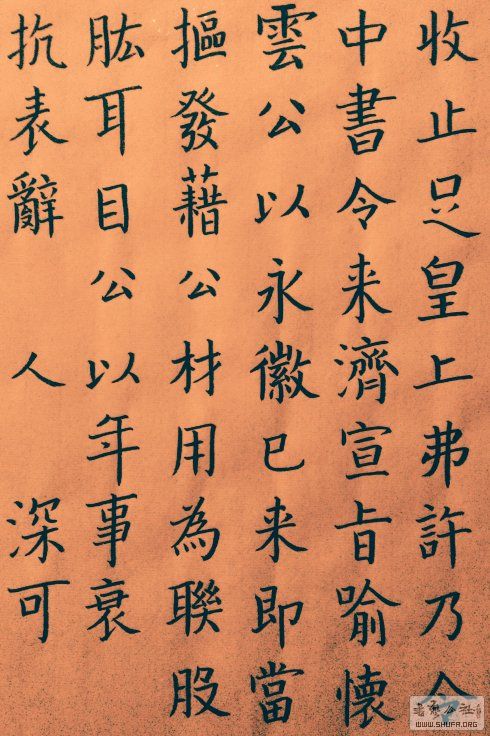 收止足皇上弗許乃令
中書令来濟宣旨喻懷
雲公以永徽已来即當
摳發藉公材用為聯股
肱耳目公以年事衰
抗表辭 人 深可
WWW.SHUFA.ORG